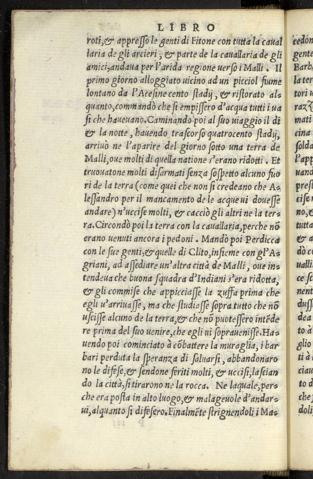 LIBRO
roti, & appresso le genti di Fitone con tutta la caual
laria de gli arcieri, & parte de la cauallaria de gli
amici, andaua per l'arida regione uerso i Malli. Il
primo giorno alloggiato uicino ad un picciol fiume
lontano da l'Acesine cento stadÿ, & ristorato als
quanto, commandò che si empissero d'acqua tutti i ua
si che haueuano. Caminando poi al suo uiaggio il dì
& la notte, hauendo trascorso quatrocento stadÿ,
arriuò ne l'aparire del giorno sotto una terra de
Malli, oue molti di quella natione s'erano ridotti. Et
trouatone molti disarmati senza sospetto alcuno fuo
ri de la terra (come quei che non si credeano che A=
lessandro per il mancamento de le acque ui douesse
andare) n'uccise molti, & cacciò gli altri ne la ter=
ra. Circondò poi la terra con la cauallaria, perche nõ
erano uenuti ancora i pedoni. Mandò poi Perdicca
con le sue genti, & quelle di Clito, insieme con gl'A=
griani, ad assediare un'altra città de Malli, oue ins
tendeua che buona squadra d'Indiani s'era ridotta,
& gli commise che appicciasse la zuffa prima che
egli u'arriuasse, ma che studiasse sopra tutto che nõ
uscisse alcuno de la terra, & che nõ puotessero intẽde
re prima del suo uenire, che egli ui soprauenisse. Ha=
uendo poi cominciato à cõbattere la muraglia, i bar
bari perduta la speranza di saluarsi, abbandonaro=
no le difese, & sendone feriti molti, & uccisi, lascian
do la città, si tirarono ne la rocca. Ne laquale, per=
che era posta in alto luogo, & malageuole d'andar=
ui, alquanto si difesero. Finalmẽte stringendoli i Ma=